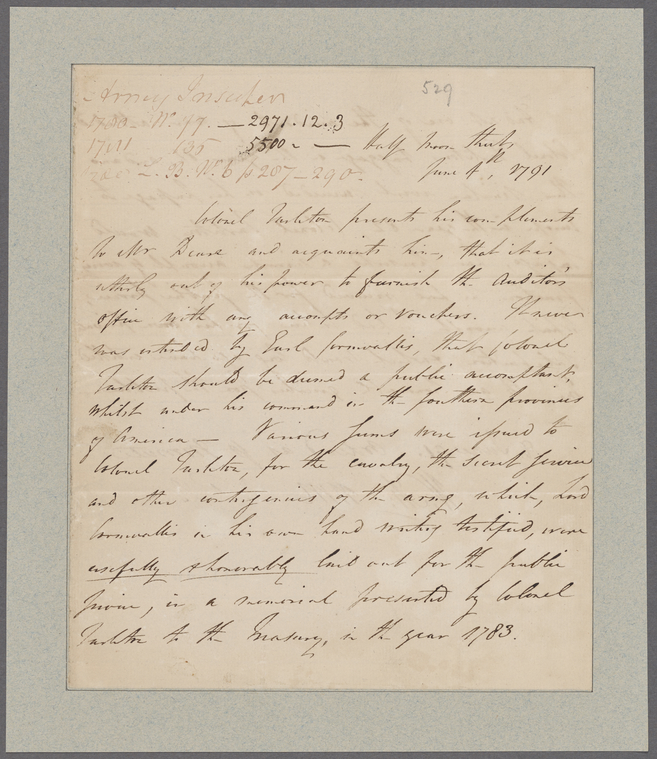 529
Army
1780 - No. 97. — 2971.12.3
1781 135 5500 - — Half Moon Street
L. B. No. 6 p 287 - 290. June 4th, 1791
Colonel Tarleton presents his compliments
to Mr Deare and acquaints him, that it is
utterly out of his power to furnish the Auditor's
office with any accompts or vouchers. It never
was by Earl Cornwallis, that Colonel
Tarleton should be deemed a public accomptant,
whilst under his command in the Southern provinces
of America — Various sums were issued to
Colonel Tarleton, for the cavalry, the secret service
and other contingencies of the army, which, Lord
Cornwallis in his own hand writing testified, were
usefully & honorably laid out for the public
service, in a memorial presented by Colonel
Tarleton to the Treasury, in the year 1783.